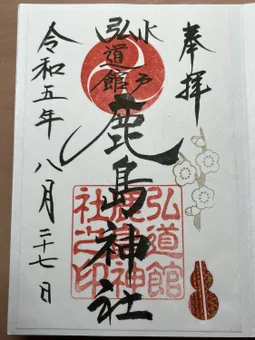 奉拝
水戸
弘道館
鹿島神社
令和五年 八月二十七日
弘道館
鹿島神
社之印